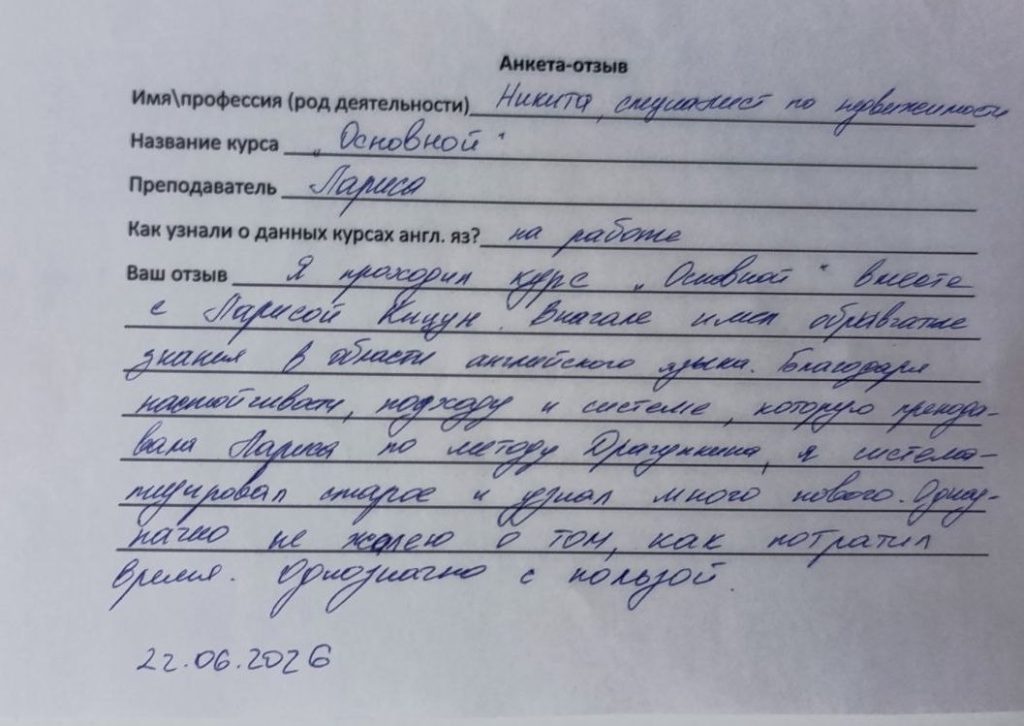 Анкета-отзыв
Имя\профессия (род деятельности) Никита, специалист по недвижимости
Название курса „Основной“
Преподаватель Лариса
Как узнали о данных курсах англ. яз? на работе
Ваш отзыв Я проходил курс „Основной“ вместе
с Ларисой Кицун. Вначале имел обрывчатые
знания в области английского языка. Благодаря
настойчивости, подходу и системе, которую препода-
вала Лариса по методу Драгункина, я система-
тизировал старое и узнал много нового. Одноз-
начно не жалею о том, как потратил
время. Однозначно с пользой.
22.06.2026